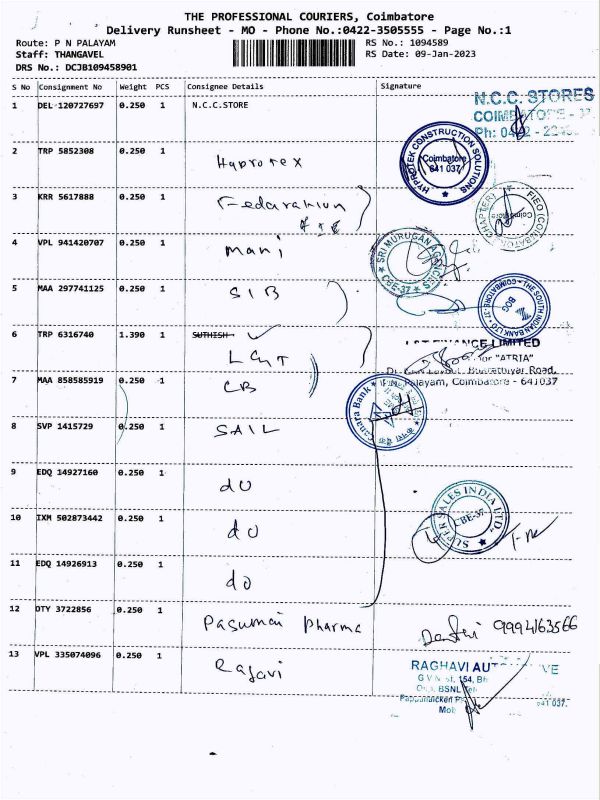 THE PROFESSIONAL COURIERS, Coimbatore
Delivery Runsheet - MO - Phone No.:0422-3505555 - Page No.:1
Route: P N PALAYAM
Staff: THANGAVEL
DRS No.: DCJB109458901
RS No.: 1094589
RS Date: 09-Jan-2023
S No Consignment No Weight PCS Consignee Details Signature
1 DEL 120727697 0.250 1 N.C.C.STORE
N.C.C. STORES
2 TRP 5852308 0.250 1 Hyprotex
HYPROTEK CONSTRUCTION SOLUTIONS
Coimbatore
641 037
3 KRR 5617888 0.250 1
FIEO (COIMBATORE CHAPTER)
4 VPL 941420707 0.250 1 Mani
SRI MURUGAN AGENCIES
CBE-37
5 MAA 297741125 0.250 1 SIB
THE SOUTH INDIAN BANK LTD
COIMBATORE-37
BOG
6 TRP 6316740 1.390 1 SUTHISH
L&T
FINANCE LIMITED
"ATRIA"
Bharathiyar Road,
Palayam, Coimbatore - 641037
7 MAA 858585919 0.250 1 CB
Canara Bank
8 SVP 1415729 0.250 1 SAIL
9 EDQ 14927160 0.250 1 do
SUPER SALES INDIA LTD.
CBE-37
10 IXM 502873442 0.250 1 do
11 EDQ 14926913 0.250 1 do
12 OTY 3722856 0.250 1 Pasumai Pharma
9994163566
13 VPL 335074096 0.250 1 Ragavi
RAGHAVI
154,
BSNL
641 037.